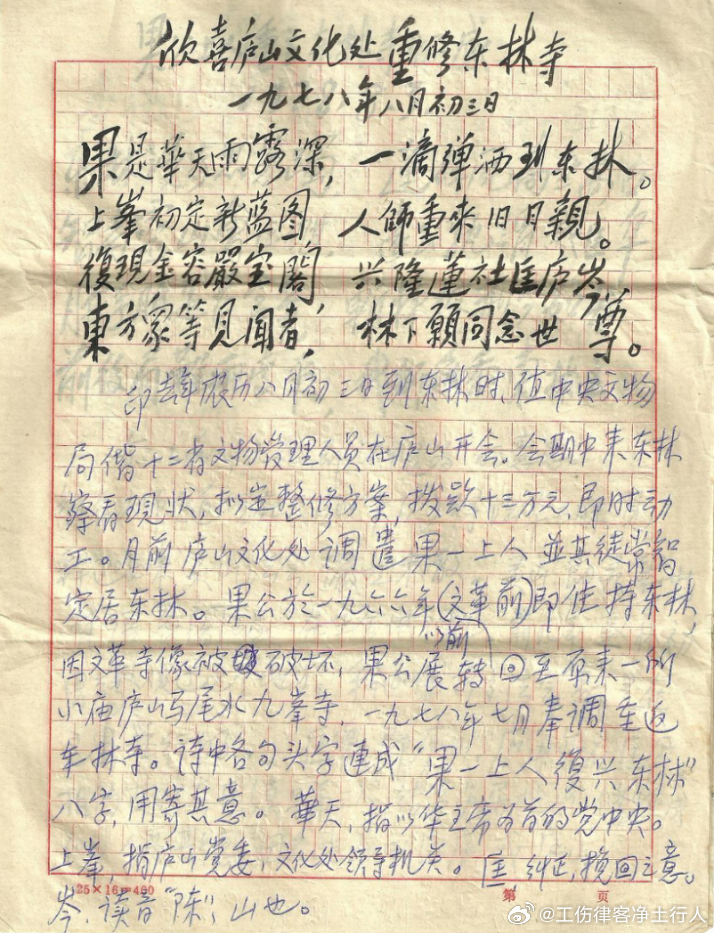 欣喜庐山文化处重修东林寺
一九七八年八月初三日
果是華天雨露深，一滴弹洒到东林。
上峯初定新蓝图，人師重来旧日親。
復現金容嚴宝閣，兴隆蓮社匡庐岑，
東方衆等見闻者，林下願同念世尊。
印去年农历八月初三日到东林时，值中央文物
局偕十二省文物管理人员在庐山开会。会期中来东林
察看現状，拟定整修方案，拨款十三万元，即时动
工。月前庐山文化处调遣果一上人並其徒常智
定居东林。果公於一九六六年(文革前)即住持东林，
以前
因文革寺像被破坏，果公展转回至原来一所
小庙庐山马尾水九峯寺，一九七八年七月奉調重返
东林寺。诗中各句头字連成“果一上人復兴东林”
八字，用寄其意。華天，指以华主席为首的党中央。
上峯，指庐山党委，文化处领导机关。匡 纠正，挽回之意。
岑，读音“陈”，山也。
25×16=400
第 页
@工伤律客净土行人